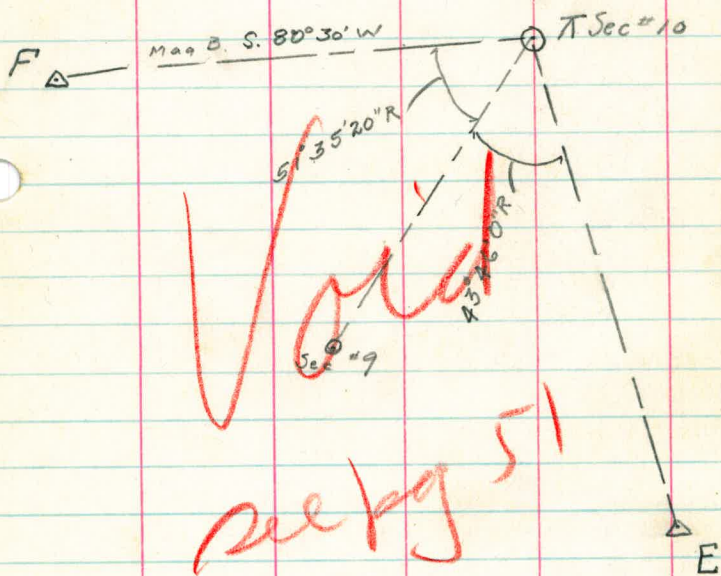 F Mag B. S. 80°30' W π Sec #10
51°35'20" R
43°46'0" R
Void
Sec #9
see pg 51
E